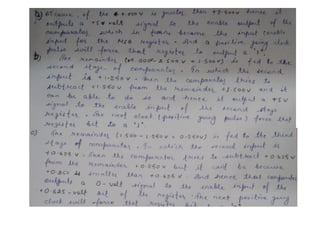 (a) of the 4.000V is greater than +2.500V hence it
outputs a +5V volt signal to the enable output of the
comparator which in turn became the input enable
input for the MSB register. And a positive going clock
pulse will force that register to output a '1'.
b) The remainder (4.000 - 2.500V = 1.500V) is fed to the
second stage of comparator. In which the second
input is +1.250V. Then the comparator tries to
subtract +1.250V from the remainder +1.500V and it
can be able to do so and hence it output a +5V
signal to the enable input of the second stage
register. The next clock (positive going pulse) force that
register bit to a '1'.
c) The remainder (1.500 - 1.250V = 0.250V) is fed to the third
stage of comparator. In which the second input is
+0.625V. Then the comparator tries to subtract +0.625V
from the remainder +0.250V but it will be because
+0.250 is smaller than +0.625V. And hence that comparator
outputs a 0-volt signal to the enable input of the
+0.625-volt bit of register. The next positive going
clock will force that register bit to